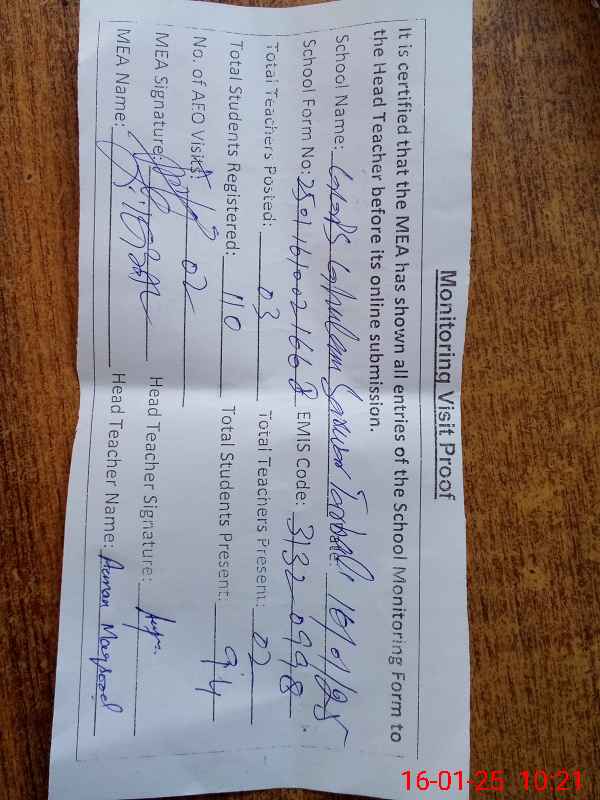 Monitoring Visit Proof
It is certified that the MEA has shown all entries of the School Monitoring Form to
the Head Teacher before its online submission.
School Name: Ghulam Date: 16/01/25
School Form No: 25011610021668 EMIS Code: 31320998
Total Teachers Posted: 03 Total Teachers Present: 02
Total Students Registered: 110 Total Students Present: 94
No. of AEO Visits: 02
MEA Signature: Head Teacher Signature:
MEA Name: Head Teacher Name: Maqsood
16-01-25 10:21